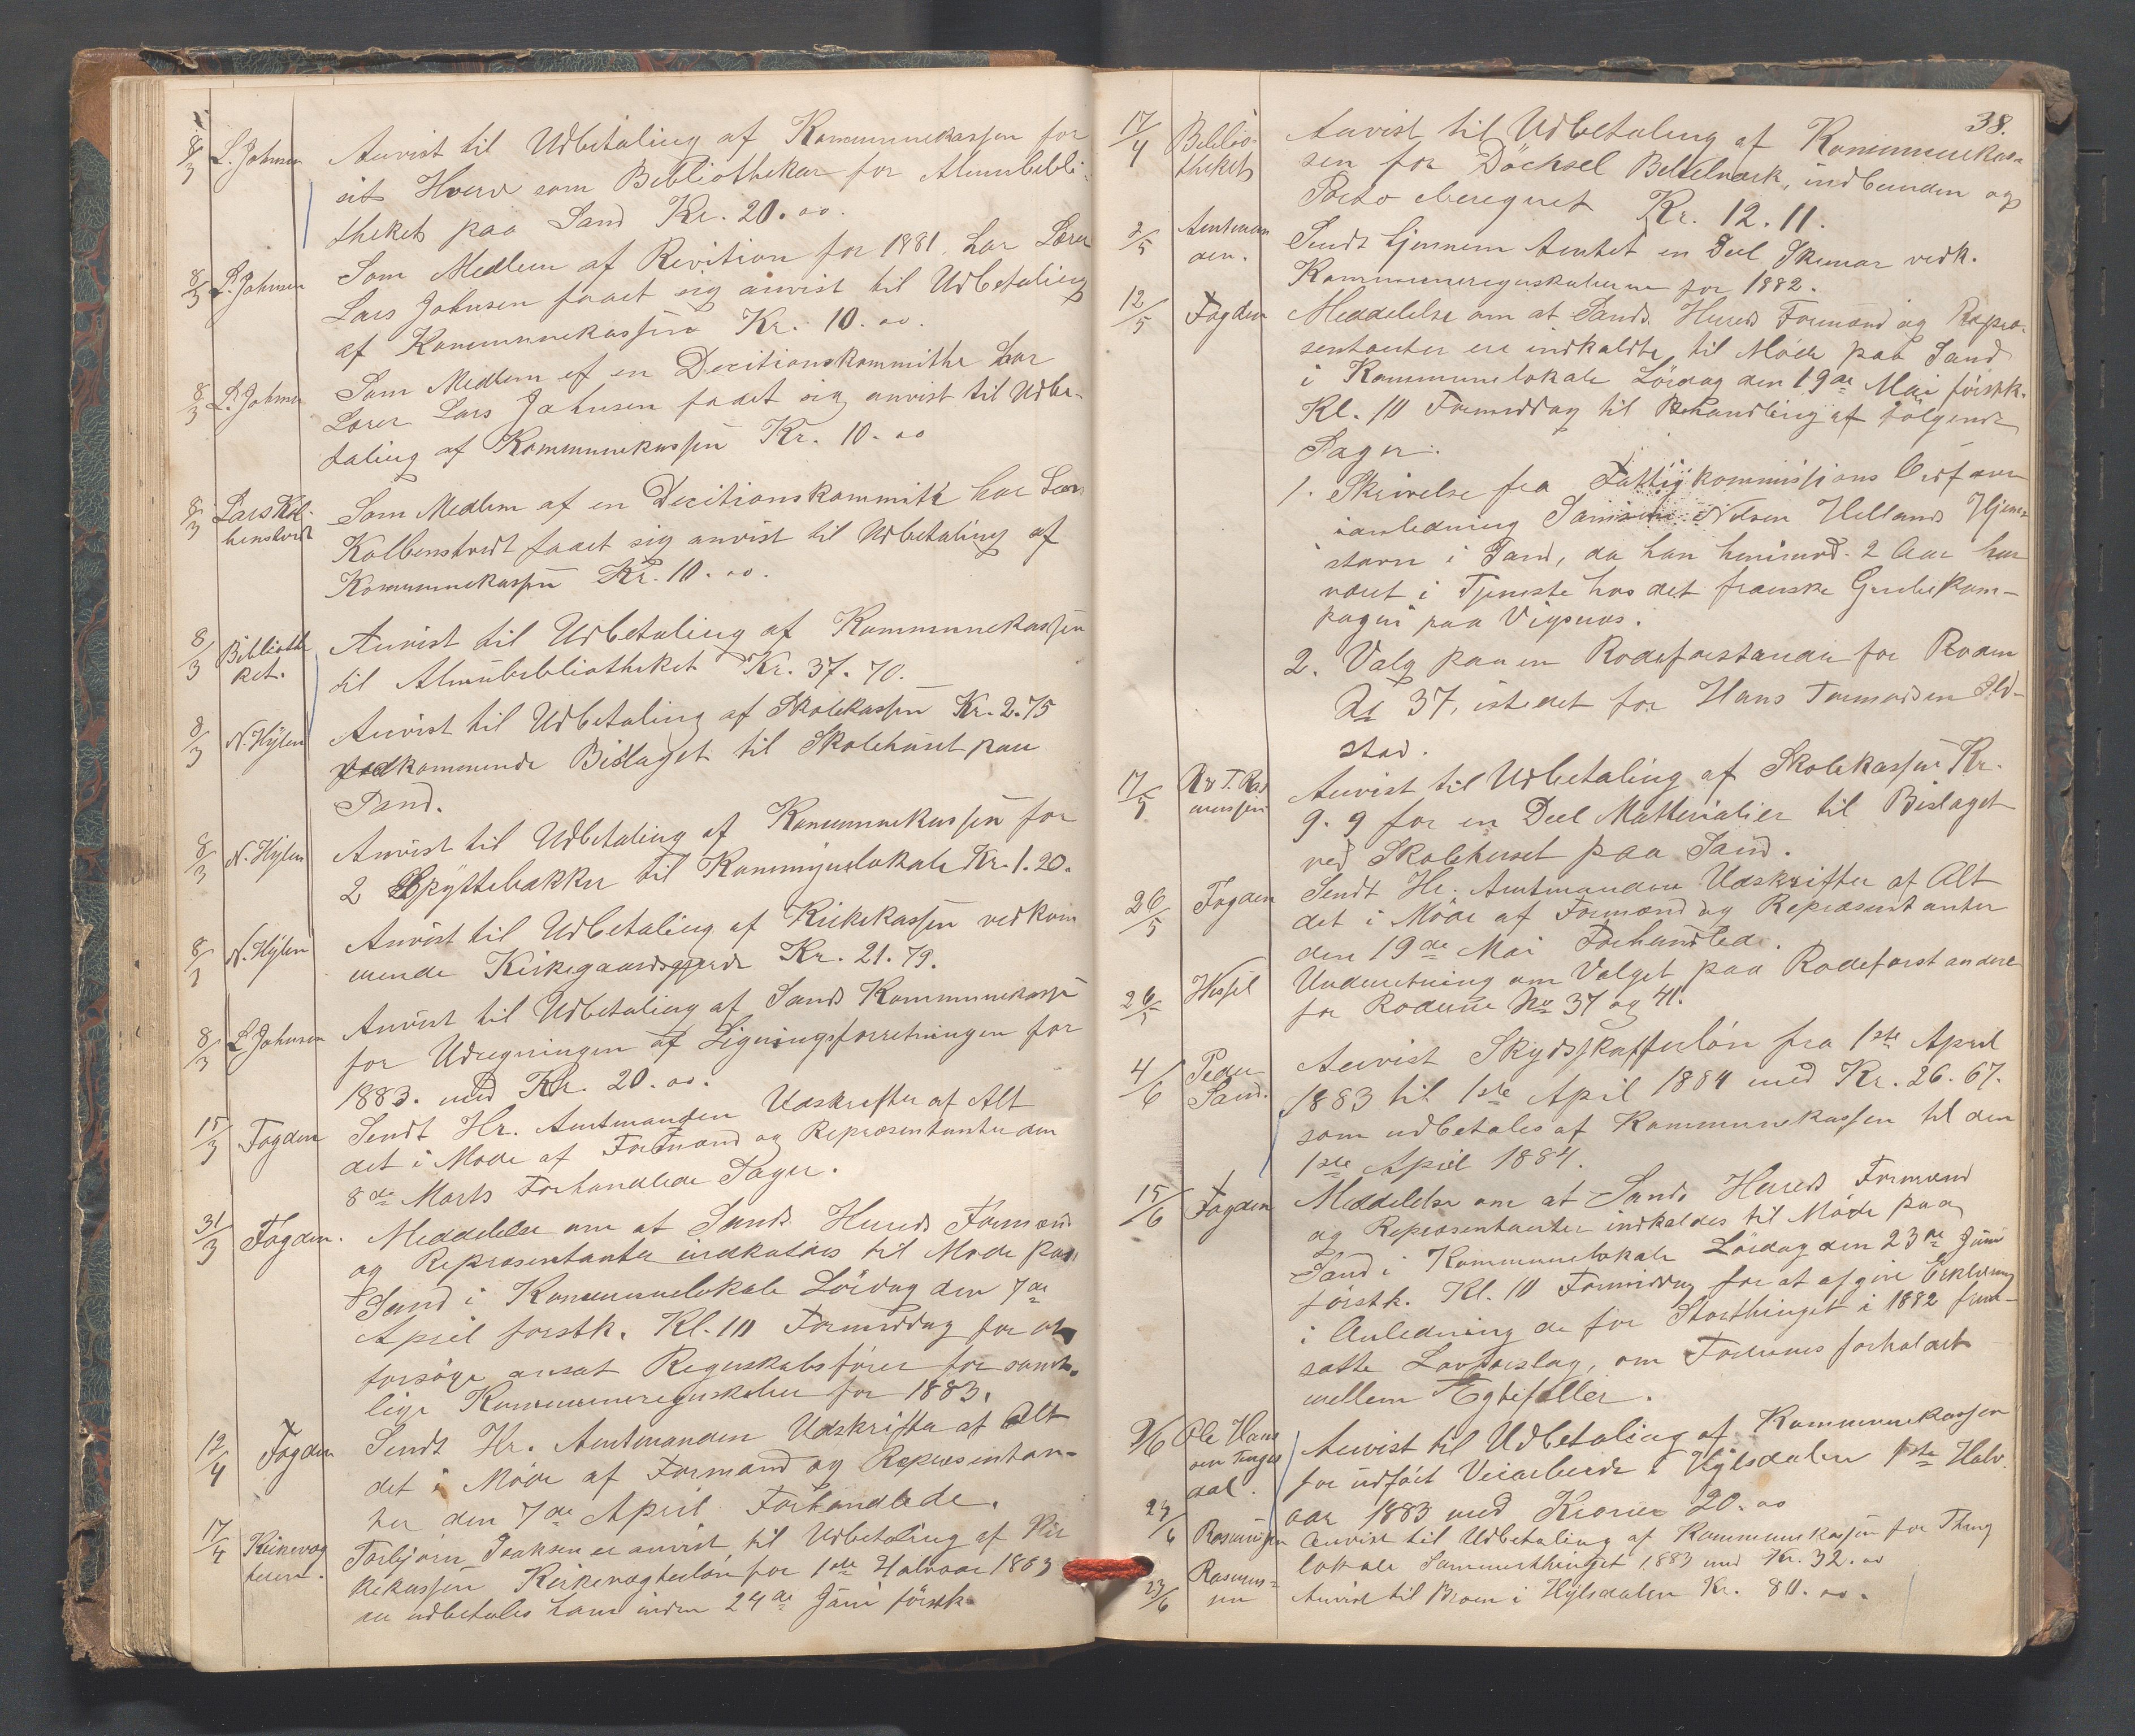 8/3 L. Johnsen Anvist til Udbetaling af Kommunekassen for
sit Hverv som Bibliothekar for Almubibli-
thekets paa Sand Kr. 20.00.
8/3 L. Johnsen Som Medlem af Revition for 1881 har Lærer
Lars Johnsen faaet sig anvist til Udbetaling
af Kommunekassen Kr. 10.00.
8/3 L. Johnsen Som Medlem af en Decitionskommithe har
Lærer Lars Johnsen faaet sig anvist til Udbe-
taling af Kommunekassen Kr. 10.00
8/3 Lars Kol-
benstvedt Som Medlem af en Decitionskommite har Lars
Kolbenstvedt faaet sig anvist til Udbetaling af
Kommunekassen Kr. 10.00.
8/3 Bibliothe
ket. Anvist til Udbetaling af Kommunekassen
til Almubibliotheket Kr. 37.70.
8/3 N. Hylen Anvist til Udbetaling af Skolekassen Kr. 2.75
vedkommende Bislaget til Skolehuset paa
Sand.
8/3 N. Hylen Anvist til Udbetaling af Kommunekassen for
2 Spyttebakker til Kommunelokale Kr. 1.20.
8/3 N. Hylen Anvist til Udbetaling af Kirkekassen vedkom
mende Kirkegaardsgjerde Kr. 21.79.
8/3 L Johnsen Anvist til Udbetaling af Sands Kommunekasse
for Udregningen af Ligningsforretningen for
1883. med Kr. 20.00.
15/3 Fogden Sendt Hr. Amtmanden Udskrifter af Alt
det i Møde af Formænd og Repræsentanter den
8de Marts Forhandlede Sager.
31/3 Fogden. Meddelelse om at Sands Hereds Formænd
og Repræsentanter indkaldes til Møde paa
Sand i Kommunelokale Lördag den 7de
April förstk. Kl. 10 Formiddag for at
forsöge ansat Regnskabsfører for samt-
lige Kommuneregnskaber for 1883.
12/4 Fogden Sendt Hr. Amtmanden Udskrifter af Alt
det i Møde af Formænd og Repræsentan-
ter den 7de April Forhandlede.
17/4 Kirkevæg
teren. Torbjörn Isaksen er anvist til Udbetaling af Kir
kekassen Kirkevægterlön for 1ste Halvaar 1883
at udbetales ham inden 24de Juni förstk.
38.
17/4 Biblio-
theket Anvist til Udbetaling af Kommunekas-
sen for Döchsel Bibelverk, indbunden og
Porto beregnet Kr. 12.11.
2/5 Amtman
den. Sendt Gjennem Amtet en Deel Skemar vedk.
Kommuneregnskaberne for 1882.
12/5 Fogden Meddelelse om at Sands Hereds Formænd og Repræ-
sentanter er indkaldte til Möde paa Sand
i Kommunelokale Lördag den 19de Mai förstk.
Kl. 10 Formiddag til Behandling af fölgende
Sager.
1. Skrivelse fra Fattigkommissions Ordfører
ianledning Nilsen Hellands Hjem-
stavn i Sand, da han henimod 2 Aar har
været i Tjeneste hos det franske Grubekom-
pagni paa Vigsnes.
2. Valg paa en Rodeforstander for Roden
No 37, istedet for Hans Tormodsen
stad.
17/5 T. Ras
mussen Anvist til Udbetaling af Skolekassen Kr.
9.9 for en Deel Matterialier til Bislaget
ved Skolehuset paa Sand.
26/5 Fogden Sendt Hr. Amtmanden Udskrifter af Alt
det i Möde af Formænd og Repræsentanter
den 19de Mai Forhandlede.
26/5 Underretning om Valget paa Rodeforstandere
for Roderne No 37 og 41.
4/6 Peder
Sand. Anvist Skydsskafferlön fra 1ste April
1883 til 1ste April 1884 med Kr. 26.67.
som udbetales af Kommunekassen til den
1ste April 1884.
15/6 Fogden Meddelelse om at Sands Hereds Formænd
og Repræsentanter indkaldes til Möde paa
Sand i Kommunelokale Lördag den 23de Juni
förstk. Kl. 10 Formiddag for at afgive Erklæring
i Anledning de for Storthinget i 1882 frem-
satte Lovforslag, om Formuesforholdet
mellem Ægtefeller.
9/6 Ole Hans
sen Tenges
dal. Anvist til Udbetaling af Kommunekassen
for udfört Veiarbeide i Hylsdalen 1ste Halv
aar 1883 med Kroner 20.00
23/6 Rasmussen Anvist til Udbetaling af Kommunekassen for Thing
lokale Sommerthinget 1883 med Kr. 32.00
23/6 Rasmus-
sen Anvist til Broen i Hylsdalen Kr. 80.00.